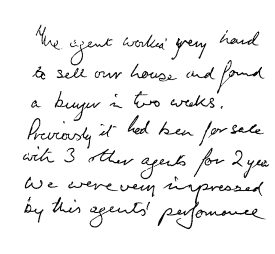 The agent worked very hard
to sell our house and found
a buyer in two weeks.
Previously it had been for sale
with 3 other agents for 2 years
We were very impressed
by this agents' performance